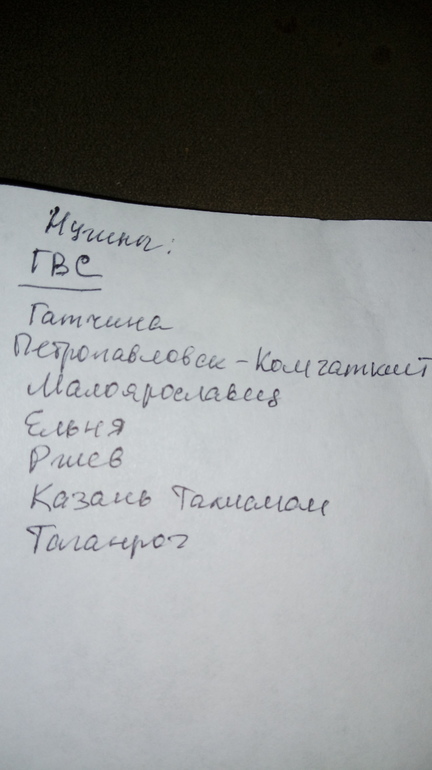 Нужны:
ГВС
Гатчина
Петропавловск-Камчаткий
Малоярославец
Ельня
Ржев
Казань Талисман
Таганрог